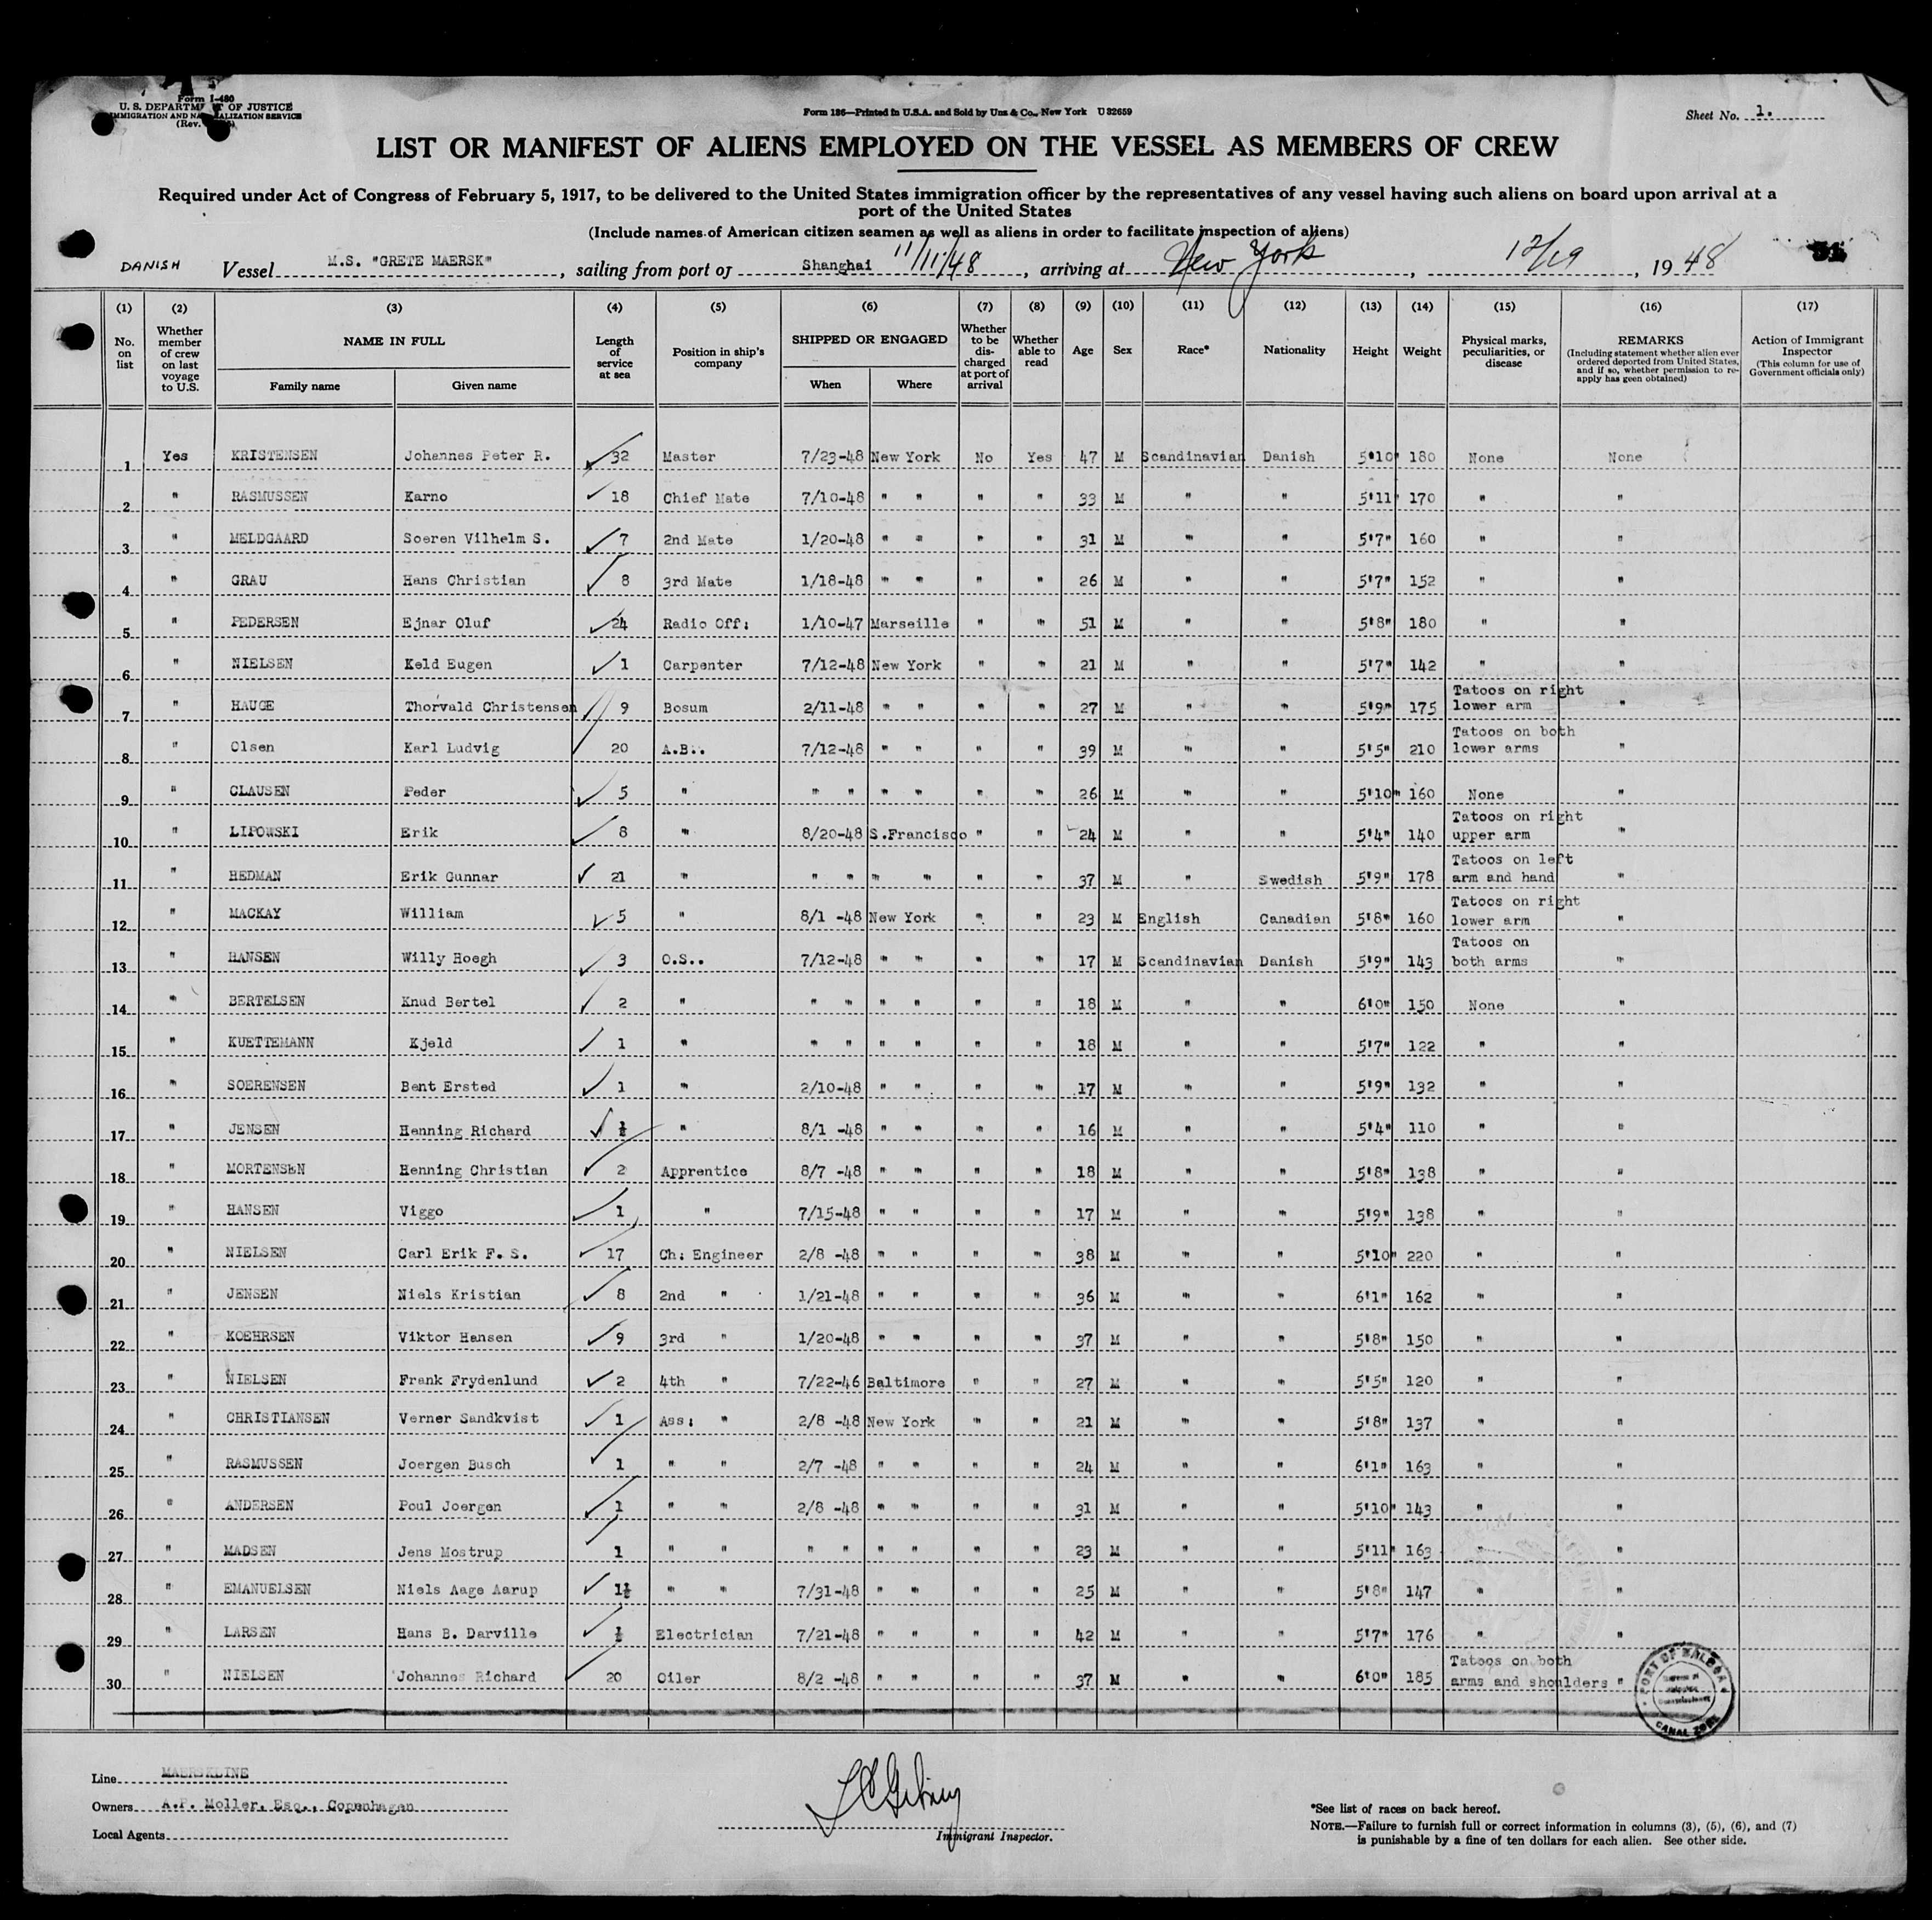 Form I-480
U. S. DEPARTM T OF JUSTICE
IMMIGRATION AND NA ALIZATION SERVICE
(Rev.
Form 186—Printed in U.S.A. and Sold by Unz & Co., New York U 32659
Sheet No. 1.
LIST OR MANIFEST OF ALIENS EMPLOYED ON THE VESSEL AS MEMBERS OF CREW
Required under Act of Congress of February 5, 1917, to be delivered to the United States immigration officer by the representatives of any vessel having such aliens on board upon arrival at a
port of the United States
(Include names of American citizen seamen as well as aliens in order to facilitate inspection of aliens)
DANISH Vessel M.S. "GRETE MAERSK", sailing from port of Shanghai 11/11/48, arriving at New York, 12/19, 19 48
(1) (2) (3) (4) (5) (6) (7) (8) (9) (10) (11) (12) (13) (14) (15) (16) (17)
No. on list
Whether member of crew on last voyage to U.S.
NAME IN FULL
Family name Given name
Length of service at sea
Position in ship's company
SHIPPED OR ENGAGED
When Where
Whether to be discharged at port of arrival
Whether able to read
Age
Sex
Race*
Nationality
Height
Weight
Physical marks, peculiarities, or disease
REMARKS
(Including statement whether alien ever ordered deported from United States, and if so, whether permission to re-apply has geen obtained)
Action of Immigrant Inspector
(This column for use of Government officials only)
1 Yes KRISTENSEN Johannes Peter R. 32 Master 7/23-48 New York No Yes 47 M Scandinavian Danish 5'10" 180 None None
2 " RASMUSSEN Karno 18 Chief Mate 7/10-48 " " " " 33 M " " 5'11" 170 " "
3 " MELDGAARD Soeren Vilhelm S. 7 2nd Mate 1/20-48 " " " " 31 M " " 5'7" 160 " "
4 " GRAU Hans Christian 8 3rd Mate 1/18-48 " " " " 26 M " " 5'7" 152 " "
5 " PEDERSEN Ejnar Oluf 24 Radio Off: 1/10-47 Marseille " " 51 M " " 5'8" 180 " "
6 " NIELSEN Keld Eugen 1 Carpenter 7/12-48 New York " " 21 M " " 5'7" 142 " "
7 " HAUGE Thorvald Christensen 9 Bosum 2/11-48 " " " " 27 M " " 5'9" 175 Tatoos on right lower arm "
8 " Olsen Karl Ludvig 20 A.B.. 7/12-48 " " " " 39 M " " 5'5" 210 Tatoos on both lower arms "
9 " CLAUSEN Peder 5 " " " " " " " 26 M " " 5'10" 160 None "
10 " LIPOWSKI Erik 8 " 8/20-48 S.Francisco " " 24 M " " 5'4" 140 Tatoos on right upper arm "
11 " HEDMAN Erik Gunnar 21 " " " " " " " 37 M " Swedish 5'9" 178 Tatoos on left arm and hand "
12 " MACKAY William 5 " 8/1 -48 New York " " 23 M English Canadian 5'8" 160 Tatoos on right lower arm "
13 " HANSEN Willy Hoegh 3 O.S.. 7/12-48 " " " " 17 M Scandinavian Danish 5'9" 143 Tatoos on both arms "
14 " BERTELSEN Knud Bertel 2 " " " " " " " 18 M " " 6'0" 150 None "
15 " KUETTEMANN Kjeld 1 " " " " " " " 18 M " " 5'7" 122 " "
16 " SOERENSEN Bent Ersted 1 " 2/10-48 " " " " 17 M " " 5'9" 132 " "
17 " JENSEN Henning Richard ½ " 8/1 -48 " " " " 16 M " " 5'4" 110 " "
18 " MORTENSEN Henning Christian 2 Apprentice 8/7 -48 " " " " 18 M " " 5'8" 138 " "
19 " HANSEN Viggo 1 " 7/15-48 " " " " 17 M " " 5'9" 138 " "
20 " NIELSEN Carl Erik F. S. 17 Ch: Engineer 2/8 -48 " " " " 38 M " " 5'10" 220 " "
21 " JENSEN Niels Kristian 8 2nd " 1/21-48 " " " " 36 M " " 6'1" 162 " "
22 " KOEHRSEN Viktor Hansen 9 3rd " 1/20-48 " " " " 37 M " " 5'8" 150 " "
23 " NIELSEN Frank Frydenlund 2 4th " 7/22-46 Baltimore " " 27 M " " 5'5" 120 " "
24 " CHRISTIANSEN Verner Sandkvist 1 Ass: " 2/8 -48 New York " " 21 M " " 5'8" 137 " "
25 " RASMUSSEN Joergen Busch 1 " " 2/7 -48 " " " " 24 M " " 6'1" 163 " "
26 " ANDERSEN Poul Joergen 1 " " 2/8 -48 " " " " 31 M " " 5'10" 143 " "
27 " MADSEN Jens Mostrup 1 " " " " " " " " 23 M " " 5'11" 163 " "
28 " EMANUELSEN Niels Aage Aarup 1½ " " 7/31-48 " " " " 25 M " " 5'8" 147 " "
29 " LARSEN Hans B. Darville ½ Electrician 7/21-48 " " " " 42 M " " 5'7" 176 " "
30 " NIELSEN Johannes Richard 20 Oiler 8/2 -48 " " " " 37 M " " 6'0" 185 Tatoos on both arms and shoulders "
PORT OF BALBOA
CANAL ZONE
Line MAERSKLINE
Owners A.P. Moller, Esq., Copenhagen
Local Agents
Immigrant Inspector.
*See list of races on back hereof.
NOTE.—Failure to furnish full or correct information in columns (3), (5), (6), and (7)
is punishable by a fine of ten dollars for each alien. See other side.